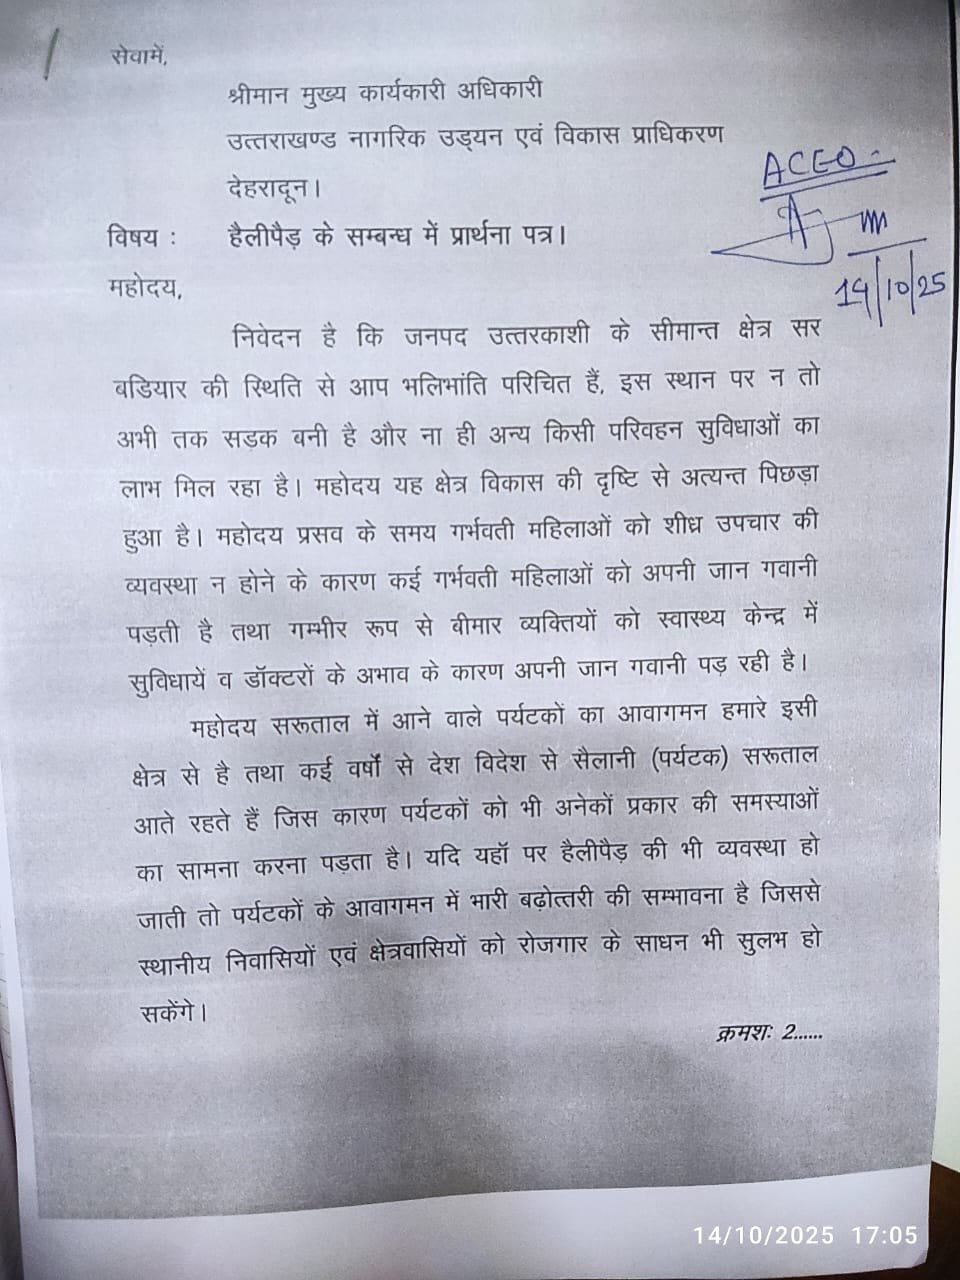 सेवामें,
श्रीमान मुख्य कार्यकारी अधिकारी
उत्तराखण्ड नागरिक उड्यन एवं विकास प्राधिकरण
देहरादून।
ACEO
14/10/25
विषय : हैलीपैड़ के सम्बन्ध में प्रार्थना पत्र।
महोदय,
निवेदन है कि जनपद उत्तरकाशी के सीमान्त क्षेत्र सर
बडियार की स्थिति से आप भलिभांति परिचित हैं, इस स्थान पर न तो
अभी तक सड़क बनी है और ना ही अन्य किसी परिवहन सुविधाओं का
लाभ मिल रहा है। महोदय यह क्षेत्र विकास की दृष्टि से अत्यन्त पिछड़ा
हुआ है। महोदय प्रसव के समय गर्भवती महिलाओं को शीध्र उपचार की
व्यवस्था न होने के कारण कई गर्भवती महिलाओं को अपनी जान गवानी
पड़ती है तथा गम्भीर रूप से बीमार व्यक्तियों को स्वास्थ्य केन्द्र में
सुविधायें व डॉक्टरों के अभाव के कारण अपनी जान गवानी पड़ रही है।
महोदय सरूताल में आने वाले पर्यटकों का आवागमन हमारे इसी
क्षेत्र से है तथा कई वर्षों से देश विदेश से सैलानी (पर्यटक) सरूताल
आते रहते हैं जिस कारण पर्यटकों को भी अनेकों प्रकार की समस्याओं
का सामना करना पड़ता है। यदि यहॉ पर हैलीपैड़ की भी व्यवस्था हो
जाती तो पर्यटकों के आवागमन में भारी बढ़ोत्तरी की सम्भावना है जिससे
स्थानीय निवासियों एवं क्षेत्रवासियों को रोजगार के साधन भी सुलभ हो
सकेंगे।
क्रमशः 2......
14/10/2025 17:05